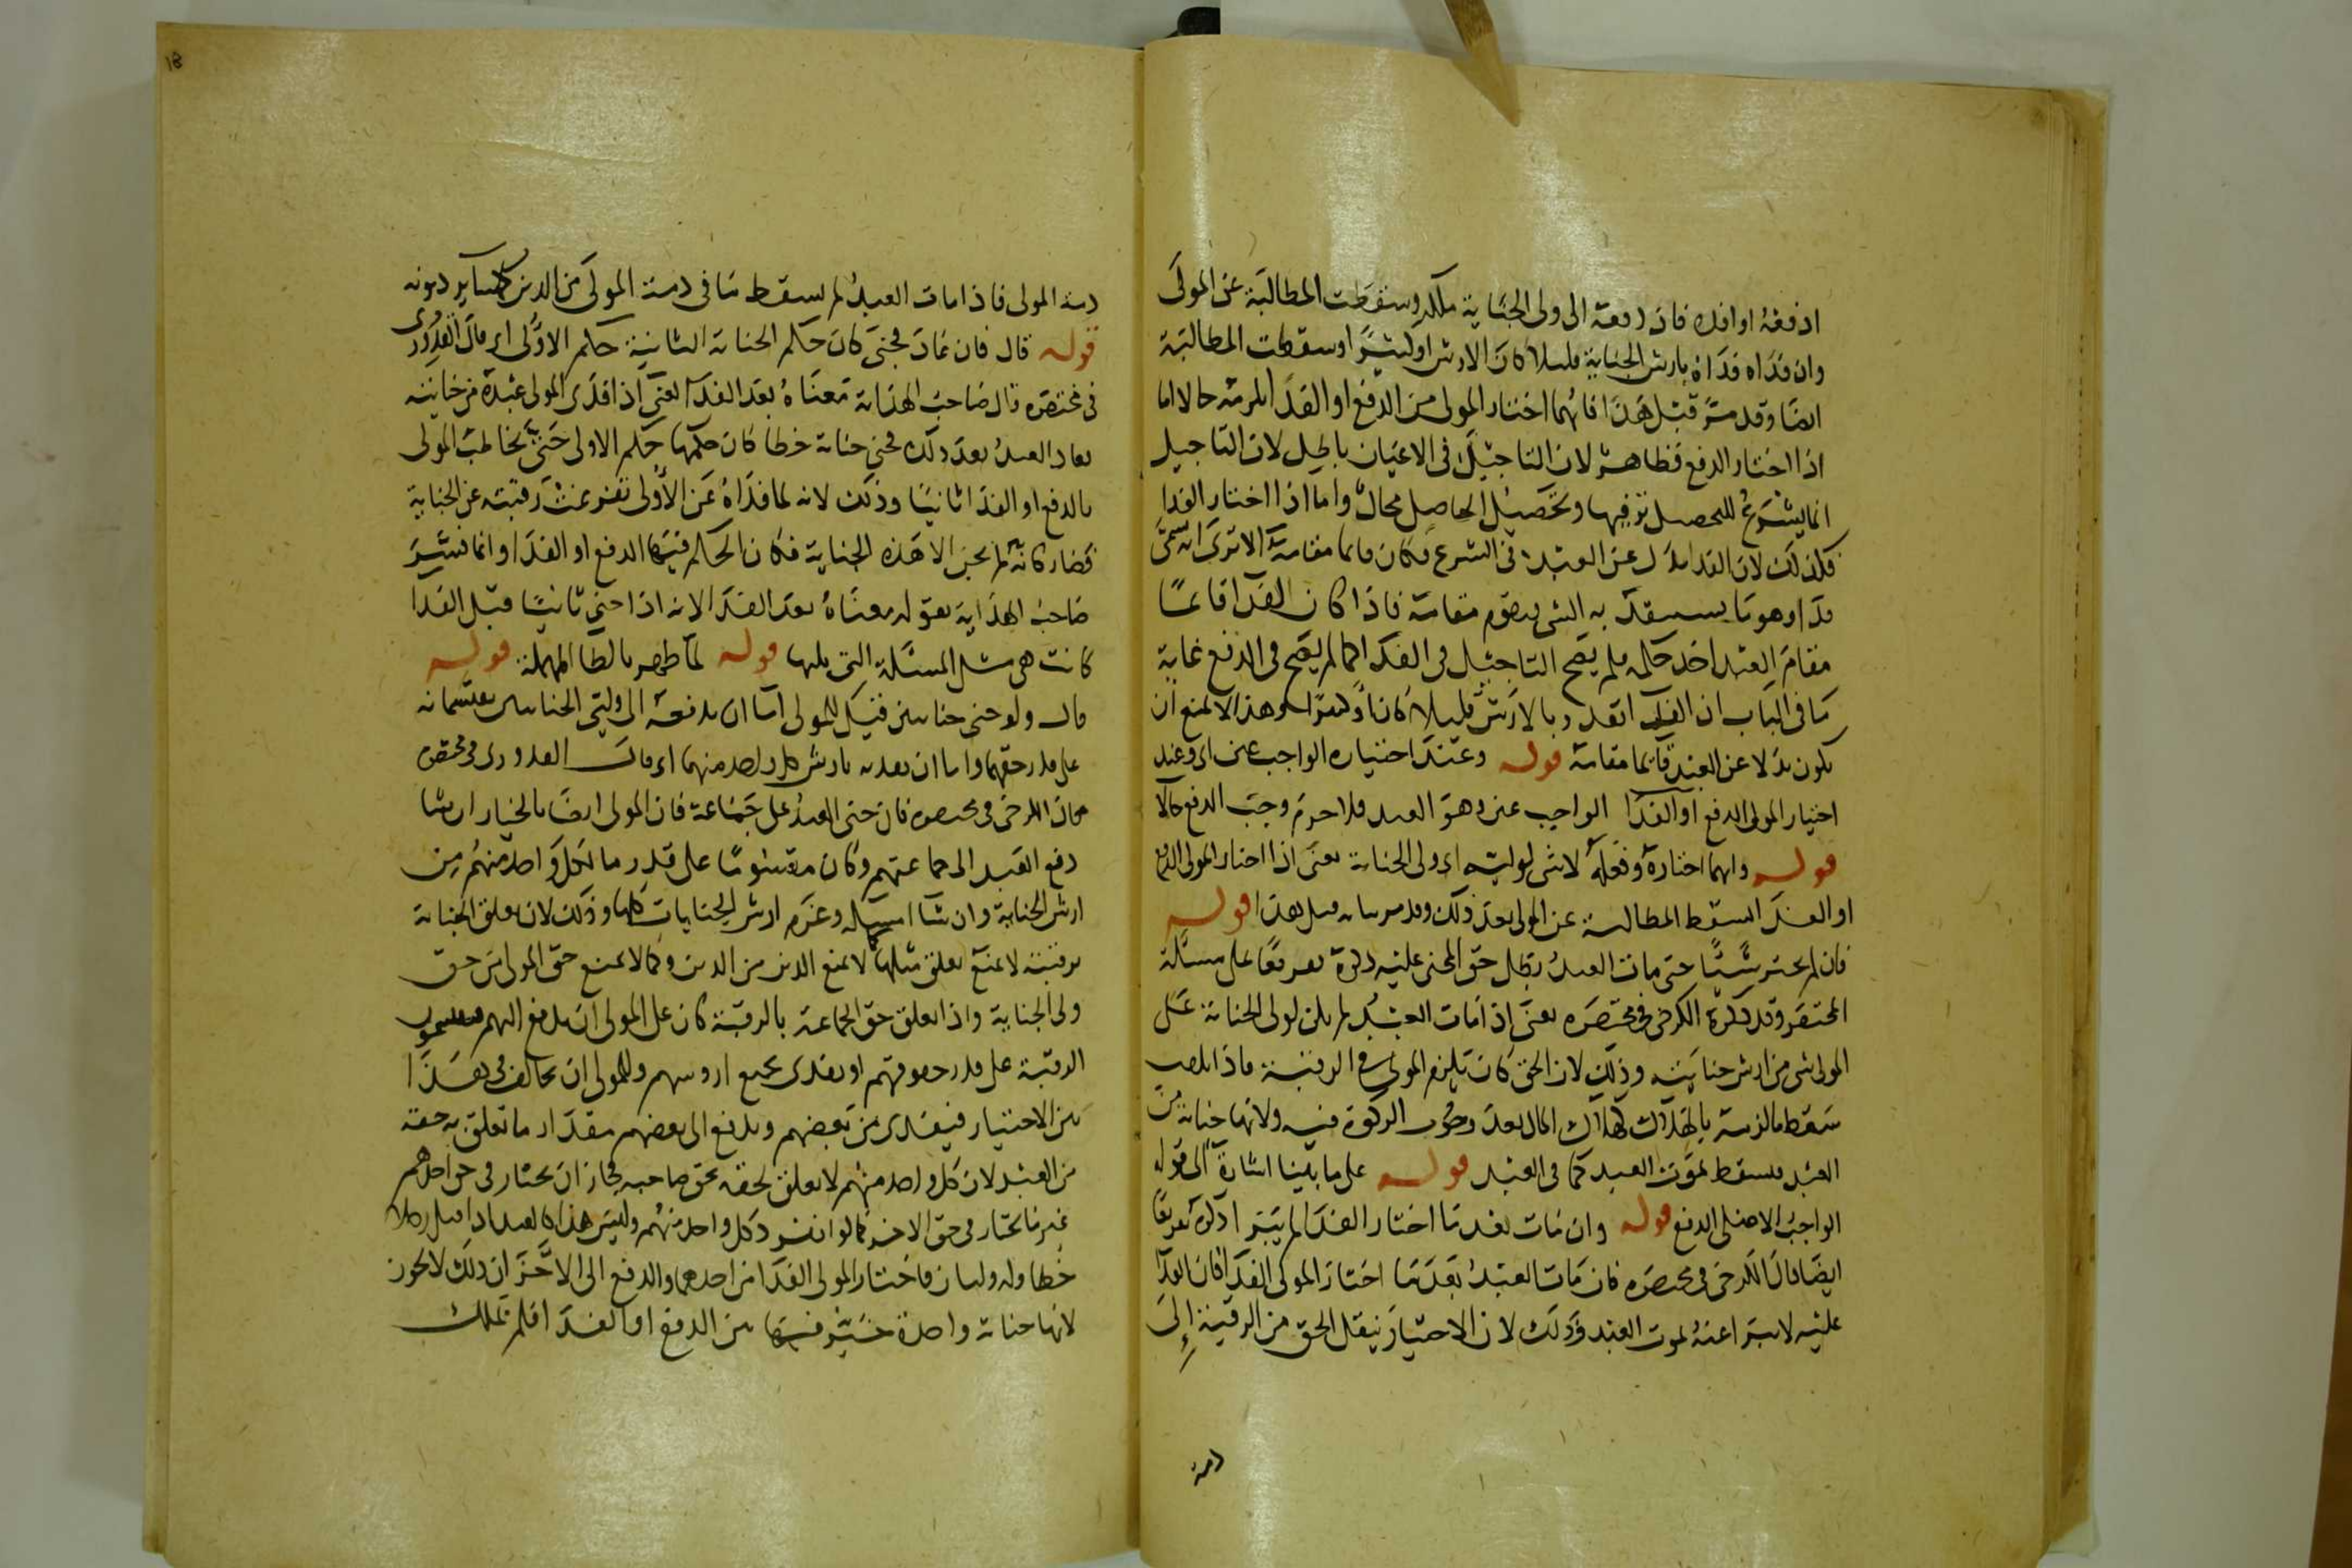 ادفعه او افده فان دفعه الى ولى الجناية ملكه وسقطت المطالبة عن المولى
وان فداه فداه بارش الجناية قليلا كان الارش او كثيرا وسقطت المطالبة
ايضا وقد مر قبل هذا فايهما اختار المولى من الدفع او الفدا لزمه حالا اما
اذا اختار الدفع فظاهر لان التاجيل فى الاعيان باطل لان التاجيل
انما يشرع للتحصيل ترفيها وتحصيل الحاصل محال واما اذا اختار الفدا
فكذلك لان الفدا بدل عن العبد فى الشرع فكان قايما مقامه الا ترى انه سمى
فدا وهو ما يستنقذ به الشى يقوم مقامه فاذا كان الفدا قايما
مقام العبد اخذ حكمه فلم يصح التاجيل فى الفدا كما لم يصح فى الدفع غاية
ما فى الباب ان الفدا تقدر بالارش قليلا كان او كثيرا وهذا لا يمنع ان
يكون بدلا عن العبد قايما مقامه قوله وعند اختياره الواجب عين اى وعند
اختيار المولى الدفع او الفدا الواجب عين وهو العبد فلا جرم وجب الدفع حالا
قوله وايهما اختاره وفعله لا شى لوليه اى ولى الجناية يعنى اذا اختار المولى الدفع
او الفدا سقط المطالبة عن المولى بعد ذلك وقد مر بيانه قبل هذا قوله
فان لم يختر شيئا حتى مات العبد بطل حق المجنى عليه ذكره تفريعا على مسئلة
المختصر وقد ذكره الكرخى فى مختصره يعنى اذا مات العبد لم يكن لولى الجناية على
المولى شى من ارش جنايته وذلك لان الحق كان يلزم المولى فى الرقبة فاذا تلفت
سقط ما لزمه بالهلاك كهلاك المال بعد وجوب الزكوة فيه ولانها جناية من
العبد فسقط بموت العبد كما فى العبد قوله على ما بينا اشارة الى قوله
الواجب الاصلى الدفع قوله وان مات بعد ما اختار الفدا لم يبرا ذكره تفريعا
ايضا قال الكرخى فى مختصره فان مات العبد بعد ما اختار المولى الفدا فان الفدا
عليه لا يبرا عنه بموت العبد وذلك لان الاختيار ينقل الحق من الرقبة إلى
ذمة
18
ذمة المولى فاذا مات العبد لم يسقط ما فى ذمة المولى من الدين كساير ديونه
قوله قال فان عاد فجنى كان حكم الجناية الثانية حكم الاولى اى قال القدورى
فى مختصره قال صاحب الهداية معناه بعد الفدا يعنى اذا فدى المولى عبده من جنايته
فعاد العبد بعد ذلك فجنى جناية خطا كان حكمها حكم الاولى حتى يخاطب المولى
بالدفع او الفدا ثانيا وذلك لانه لما فداه عن الاولى تفرغت رقبته عن الجناية
فصار كانه لم يجن الا هذه الجناية فكان الحكم فيها الدفع او الفدا وانما فسر
صاحب الهداية بقوله معناه بعد الفدا لانه اذا جنى ثانيا قبل الفدا
كانت هى مثل المسئلة التى يليها قوله لما طهر بالطا المهملة قوله
قال ولو جنى جنايتين قيل للمولى اما ان يدفعه الى وليى الجنايتين يقتسمانه
على قدر حقهما واما ان يفديه بارش كل واحد منهما اى قال القدورى فى مختصره
وقال الكرخى فى مختصره فان جنى العبد على جماعة فان المولى ايضا بالخيار ان شا
دفع العبد الى جماعتهم وكان مقسوما على قدر ما لكل واحد منهم من
ارش الجناية وان شا امسكه وغرم ارش الجنايات كلها وذلك لان تعلق الجناية
برقبته لا يمنع تعلق مثلها كما لا يمنع الدين من الدين وكما لا يمنع حق المولى من حق
ولى الجناية واذا تعلق حق الجماعة بالرقبة كان على المولى ان يدفع اليهم فيقتسمون
الرقبة على قدر حقوقهم او يفدى بجميع اروشهم وللمولى ان يخالف فى هذا
من الاختيار فيفدى من بعضهم ويدفع الى بعضهم مقدار ما تعلق به حقه
من العبد لان كل واحد منهم لا يعلق لحقه بحق صاحبه فجاز ان يختار فى حق احدهم
غير ما يختار فى حق الاخر كما لو انفرد كل واحد منهم وليس هذا كالعبد اذا قتل رجلا
خطا وله وليان فاختار المولى الفدا من احدهما والدفع الى الاخر ان ذلك لا يجوز
لانها جناية واحدة خير فيها بين الدفع او الفدا فلم يملك